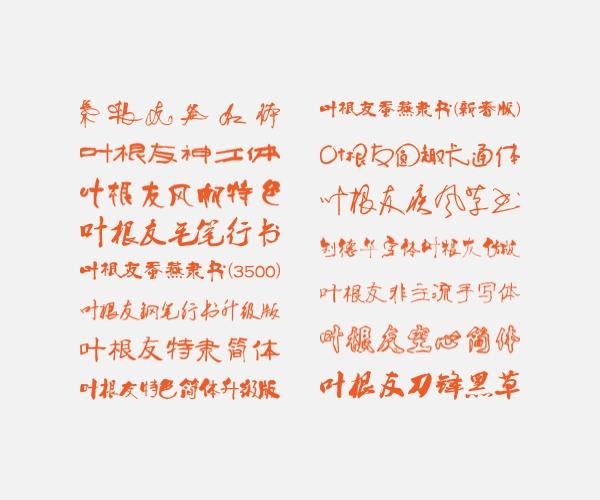 签名体
叶根友神工体
叶根友风帆特色
叶根友毛笔行书
叶根友蚕燕隶书(3500)
叶根友钢笔行书升级版
叶根友特隶简体
叶根友特色简体升级版
叶根友蚕燕隶书(新春版)
叶根友圆趣卡通体
叶根友疾风草书
刘德华字体叶根友仿版
叶根友非主流手写体
叶根友空心简体
叶根友刀锋黑草